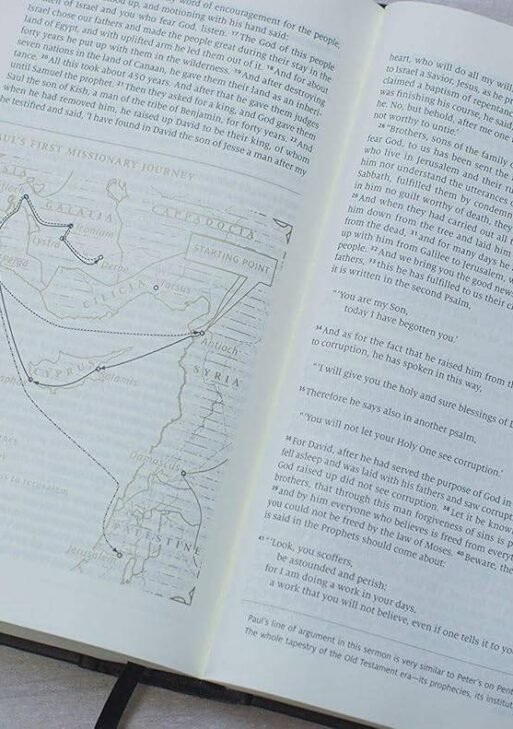 word of encouragement for the people,
up, and motioning with his hand said:
men of Israel and you who fear God, listen. 17 The God of this people
Israel chose our fathers and made the people great during their stay in the
land of Egypt, and with uplifted arm he led them out of it. 18 And for about
forty years he put up with them in the wilderness. 19 And after destroying
seven nations in the land of Canaan, he gave them their land as an inheri-
tance. 20 All this took about 450 years. And after that he gave them judges
until Samuel the prophet. 21 Then they asked for a king, and God gave them
Saul the son of Kish, a man of the tribe of Benjamin, for forty years. 22 And
when he had removed him, he raised up David to be their king, of whom
he testified and said, 'I have found in David the son of Jesse a man after my
PAUL'S FIRST MISSIONARY JOURNEY
GALATIA
CAPPADOCIA
Iconium
Lystra
Derbe
STARTING POINT
Perga
CILICIA
Tarsus
Antioch
SYRIA
CYPRUS
Salamis
Damascus
to Jerusalem
PALESTINE
Jerusalem
heart, who will do all my will.
to Israel a Savior, Jesus, as he
claimed a baptism of repentance
was finishing his course, he said,
he. No, but behold, after me one
not worthy to untie.'
26 "Brothers, sons of the family
fear God, to us has been sent the
who live in Jerusalem and their
him nor understand the utterances
Sabbath, fulfilled them by condemn
in him no guilt worthy of death, they
29 And when they had carried out all
him down from the tree and laid him
from the dead, 31 and for many days he
up with him from Galilee to Jerusalem,
people. 32 And we bring you the good news
fathers, 33 this he has fulfilled to us their
it is written in the second Psalm,
"'You are my Son,
today I have begotten you.'
34 And as for the fact that he raised him from
to corruption, he has spoken in this way,
"'I will give you the holy and sure blessings of
35 Therefore he says also in another psalm,
"'You will not let your Holy One see corruption.'
36 For David, after he had served the purpose of God in
fell asleep and was laid with his fathers and saw corrup
God raised up did not see corruption. 38 Let it be know
brothers, that through this man forgiveness of sins is
39 and by him everyone who believes is freed from every
you could not be freed by the law of Moses. 40 Beware, the
is said in the Prophets should come about:
41 "'Look, you scoffers,
be astounded and perish;
for I am doing a work in your days,
a work that you will not believe, even if one tells it to
Paul's line of argument in this sermon is very similar to Peter's on Pent
The whole tapestry of the Old Testament era—its prophecies, its institut